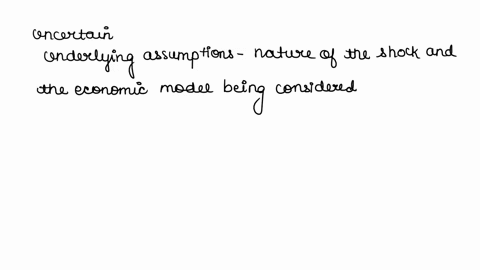 uncertain
underlying assumptions - nature of the shock and
the economic model being considered